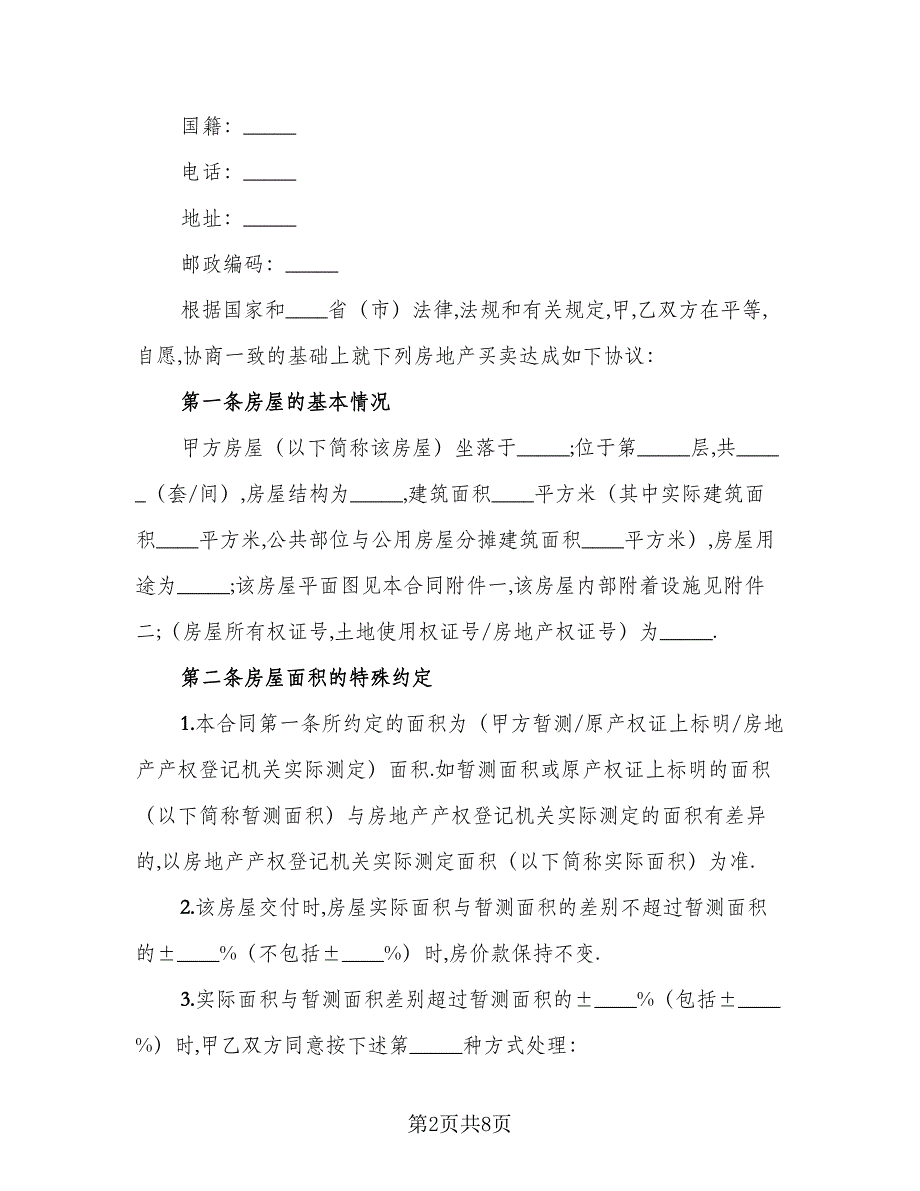 国籍：_____
电话：_____
地址：_____
邮政编码：_____
根据国家和____省（市）法律,法规和有关规定,甲,乙双方在平等,
自愿,协商一致的基础上就下列房地产买卖达成如下协议：
第一条房屋的基本情况
甲方房屋（以下简称该房屋）坐落于_____;位于第_____层,共____
_（套/间）,房屋结构为_____,建筑面积____平方米（其中实际建筑面
积____平方米,公共部位与公用房屋分摊建筑面积____平方米）,房屋用
途为_____;该房屋平面图见本合同附件一,该房屋内部附着设施见附件
二;（房屋所有权证号,土地使用权证号/房地产权证号）为_____.
第二条房屋面积的特殊约定
1.本合同第一条所约定的面积为（甲方暂测/原产权证上标明/房地
产产权登记机关实际测定）面积.如暂测面积或原产权证上标明的面积
（以下简称暂测面积）与房地产产权登记机关实际测定的面积有差异
的,以房地产产权登记机关实际测定面积（以下简称实际面积）为准.
2.该房屋交付时,房屋实际面积与暂测面积的差别不超过暂测面积
的±____%（不包括±____%）时,房价款保持不变.
3.实际面积与暂测面积差别超过暂测面积的±____%（包括±____
%）时,甲乙双方同意按下述第_____种方式处理：
第2页共8页